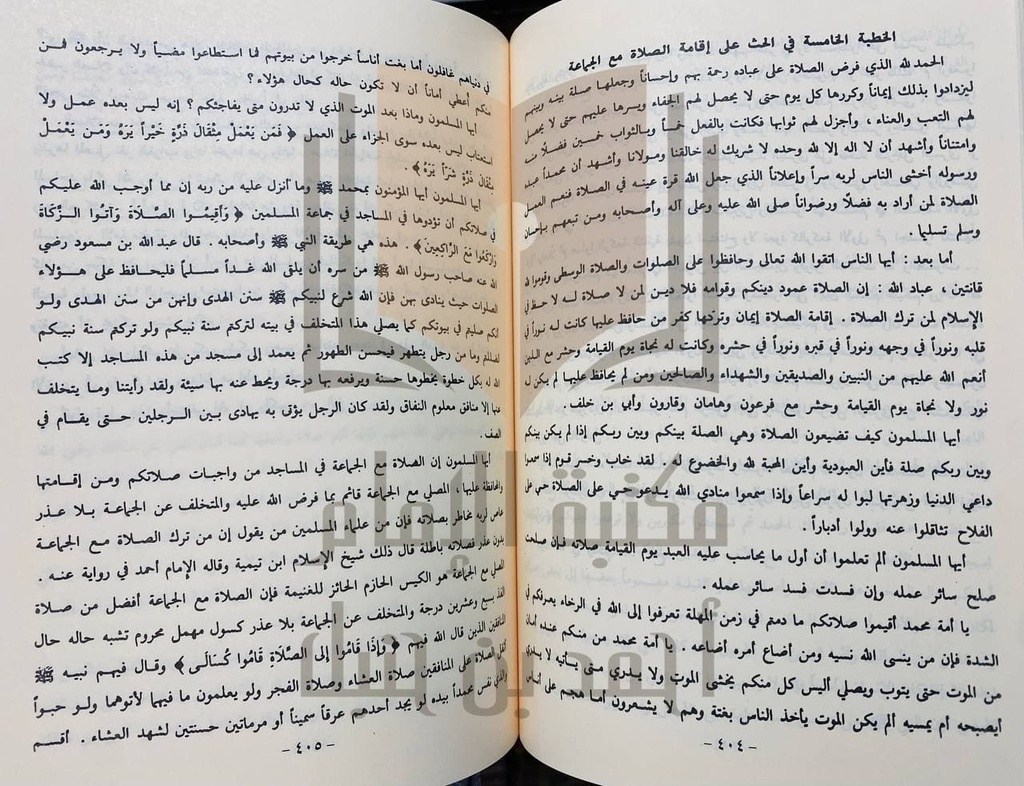 الخطبة الخامسة في الحث على إقامة الصلاة مع الجماعة
الحمد لله الذي فرض الصلاة على عباده رحمة بهم وإحساناً وجعلها صلة بينه وبينهم
ليزدادوا بذلك إيماناً وكررها كل يوم حتى لا يحصل لهم الجفاء ويسرها عليهم حتى لا يحصل
لهم التعب والعناء ، وأجزل لهم ثوابها فكانت بالفعل خمساً وبالثواب خمسين فضلاً منه
وامتناناً وأشهد أن لا اله إلا لله وحده لا شريك له خالقنا ومولانا وأشهد أن محمداً عبده
ورسوله أخشى الناس لربه سراً وإعلاناً الذي جعل الله قرة عينه في الصلاة فنعم العمل
الصلاة لمن أراد به فضلاً ورضواناً صلى الله عليه وعلى آله وأصحابه ومن تبعهم بإحسان
وسلم تسليما .
أما بعد : أيها الناس اتقوا الله تعالى وحافظوا على الصلوات والصلاة الوسطى وقوموا لله
قانتين ، عباد الله : إن الصلاة عمود دينكم وقوامه فلا دين لمن لا صلاة له لا حظ في
الإسلام لمن ترك الصلاة . إقامة الصلاة إيمان وتركها كفر من حافظ عليها كانت له نوراً في
قلبه ونوراً في وجهه ونوراً في قبره ونوراً في حشره وكانت له نجاة يوم القيامة وحشر مع الذين
أنعم الله عليهم من النبيين والصديقين والشهداء والصالحين ومن لم يحافظ عليها لم يكن له
نور ولا نجاة يوم القيامة وحشر مع فرعون وهامان وقارون وأبي بن خلف .
أيها المسلمون كيف تضيعون الصلاة وهي الصلة بينكم وبين ربكم إذا لم يكن بينكم
وبين ربكم صلة فأين العبودية وأين المحبة لله والخضوع له . لقد خاب وخسر قوم إذا سمعوا
داعي الدنيا وزهرتها لبوا له سراعاً وإذا سمعوا منادي الله يدعو حي على الصلاة حي على
الفلاح تثاقلوا عنه وولوا أدباراً .
أيها المسلمون ألم تعلموا أن أول ما يحاسب عليه العبد يوم القيامة صلاته فإن صلحت
صلح سائر عمله وإن فسدت فسد سائر عمله .
يا أمة محمد أقيموا صلاتكم ما دمتم في زمن المهلة تعرفوا إلى الله في الرخاء يعرفكم في
الشدة فإن من ينسى الله نسيه ومن أضاع أمره أضاعه . يا أمة محمد من منكم عنده أمان
من الموت حتى يتوب ويصلي أليس كل منكم يخشى الموت ولا يدري متى يأتيه لا يدري
أيصبحه أم يمسيه ألم يكن الموت يأخذ الناس بغتة وهم لا يشعرون أما هجم على أناس
- ٤٠٤ -
في دنياهم غافلون أما بغت أناساً خرجوا من بيوتهم فما استطاعوا مضياً ولا يرجعون فمن
منكم أعطي أماناً أن لا تكون حاله كحال هؤلاء ؟
أيها المسلمون وماذا بعد الموت الذي لا تدرون متى يفاجئكم ؟ إنه ليس بعده عمل ولا
استعتاب ليس بعده سوى الجزاء على العمل ﴿ فَمَن يَعْمَلْ مِثْقَالَ ذَرَّةٍ خَيْراً يَرَهُ وَمَن يَعْمَلْ
مِثْقَالَ ذَرَّةٍ شَرَّاً يَرَهُ ﴾ .
أيها المسلمون أيها المؤمنون بمحمد ﷺ وما أنزل عليه من ربه إن مما أوجب الله عليكم
في صلاتكم أن تؤدوها في المساجد في جماعة المسلمين ﴿ وَأَقِيمُوا الصَّلَاةَ وَآتُوا الزَّكَاةَ
وَارْكَعُوا مَعَ الرَّاكِعِينَ ﴾ . هذه هي طريقة النبي ﷺ وأصحابه . قال عبد الله بن مسعود رضي
الله عنه صاحب رسول الله ﷺ من سره أن يلقى الله غداً مسلماً فليحافظ على هؤلاء
الصلوات حيث ينادى بهن فإن الله شرع لنبيكم ﷺ سنن الهدى وإنهن من سنن الهدى ولو
أنكم صليتم في بيوتكم كما يصلي هذا المتخلف في بيته لتركتم سنة نبيكم ولو تركتم سنة نبيكم
لضللتم وما من رجل يتطهر فيحسن الطهور ثم يعمد إلى مسجد من هذه المساجد إلا كتب
الله له بكل خطوة يخطوها حسنة ويرفعه بها درجة ويحط عنه بها سيئة ولقد رأيتنا وما يتخلف
عنها إلا منافق معلوم النفاق ولقد كان الرجل يؤتى به يهادى بين الرجلين حتى يقام في
الصف .
أيها المسلمون إن الصلاة مع الجماعة في المساجد من واجبات صلاتكم ومن إقامتها
والمحافظة عليها ، المصلي مع الجماعة قائم بما فرض الله عليه والمتخلف عن الجماعة بلا عذر
عاص لربه مخاطر بصلاته فإن من علماء المسلمين من يقول إن من ترك الصلاة مع الجماعة
بدون عذر فصلاته باطلة قال ذلك شيخ الإسلام ابن تيمية وقاله الإمام أحمد في رواية عنه .
المصلي مع الجماعة هو الكيس الحازم الحائز للغنيمة فإن الصلاة مع الجماعة أفضل من صلاة
الفذ بسبع وعشرين درجة والمتخلف عن الجماعة بلا عذر كسول مهمل محروم تشبه حاله حال
المنافقين الذين قال الله فيهم ﴿ وَإِذَا قَامُوا إِلَى الصَّلَاةِ قَامُوا كُسَالَى ﴾ وقال فيهم نبيه ﷺ
أثقل الصلاة على المنافقين صلاة العشاء وصلاة الفجر ولو يعلمون ما فيهما لأتوهما ولو حبواً
والذي نفس محمداً بيده لو يجد أحدهم عرقاً سميناً أو مرماتين حسنتين لشهد العشاء . أقسم
- ٤٠٥ -
مكتبة الإمام
أحمد بن حنبل